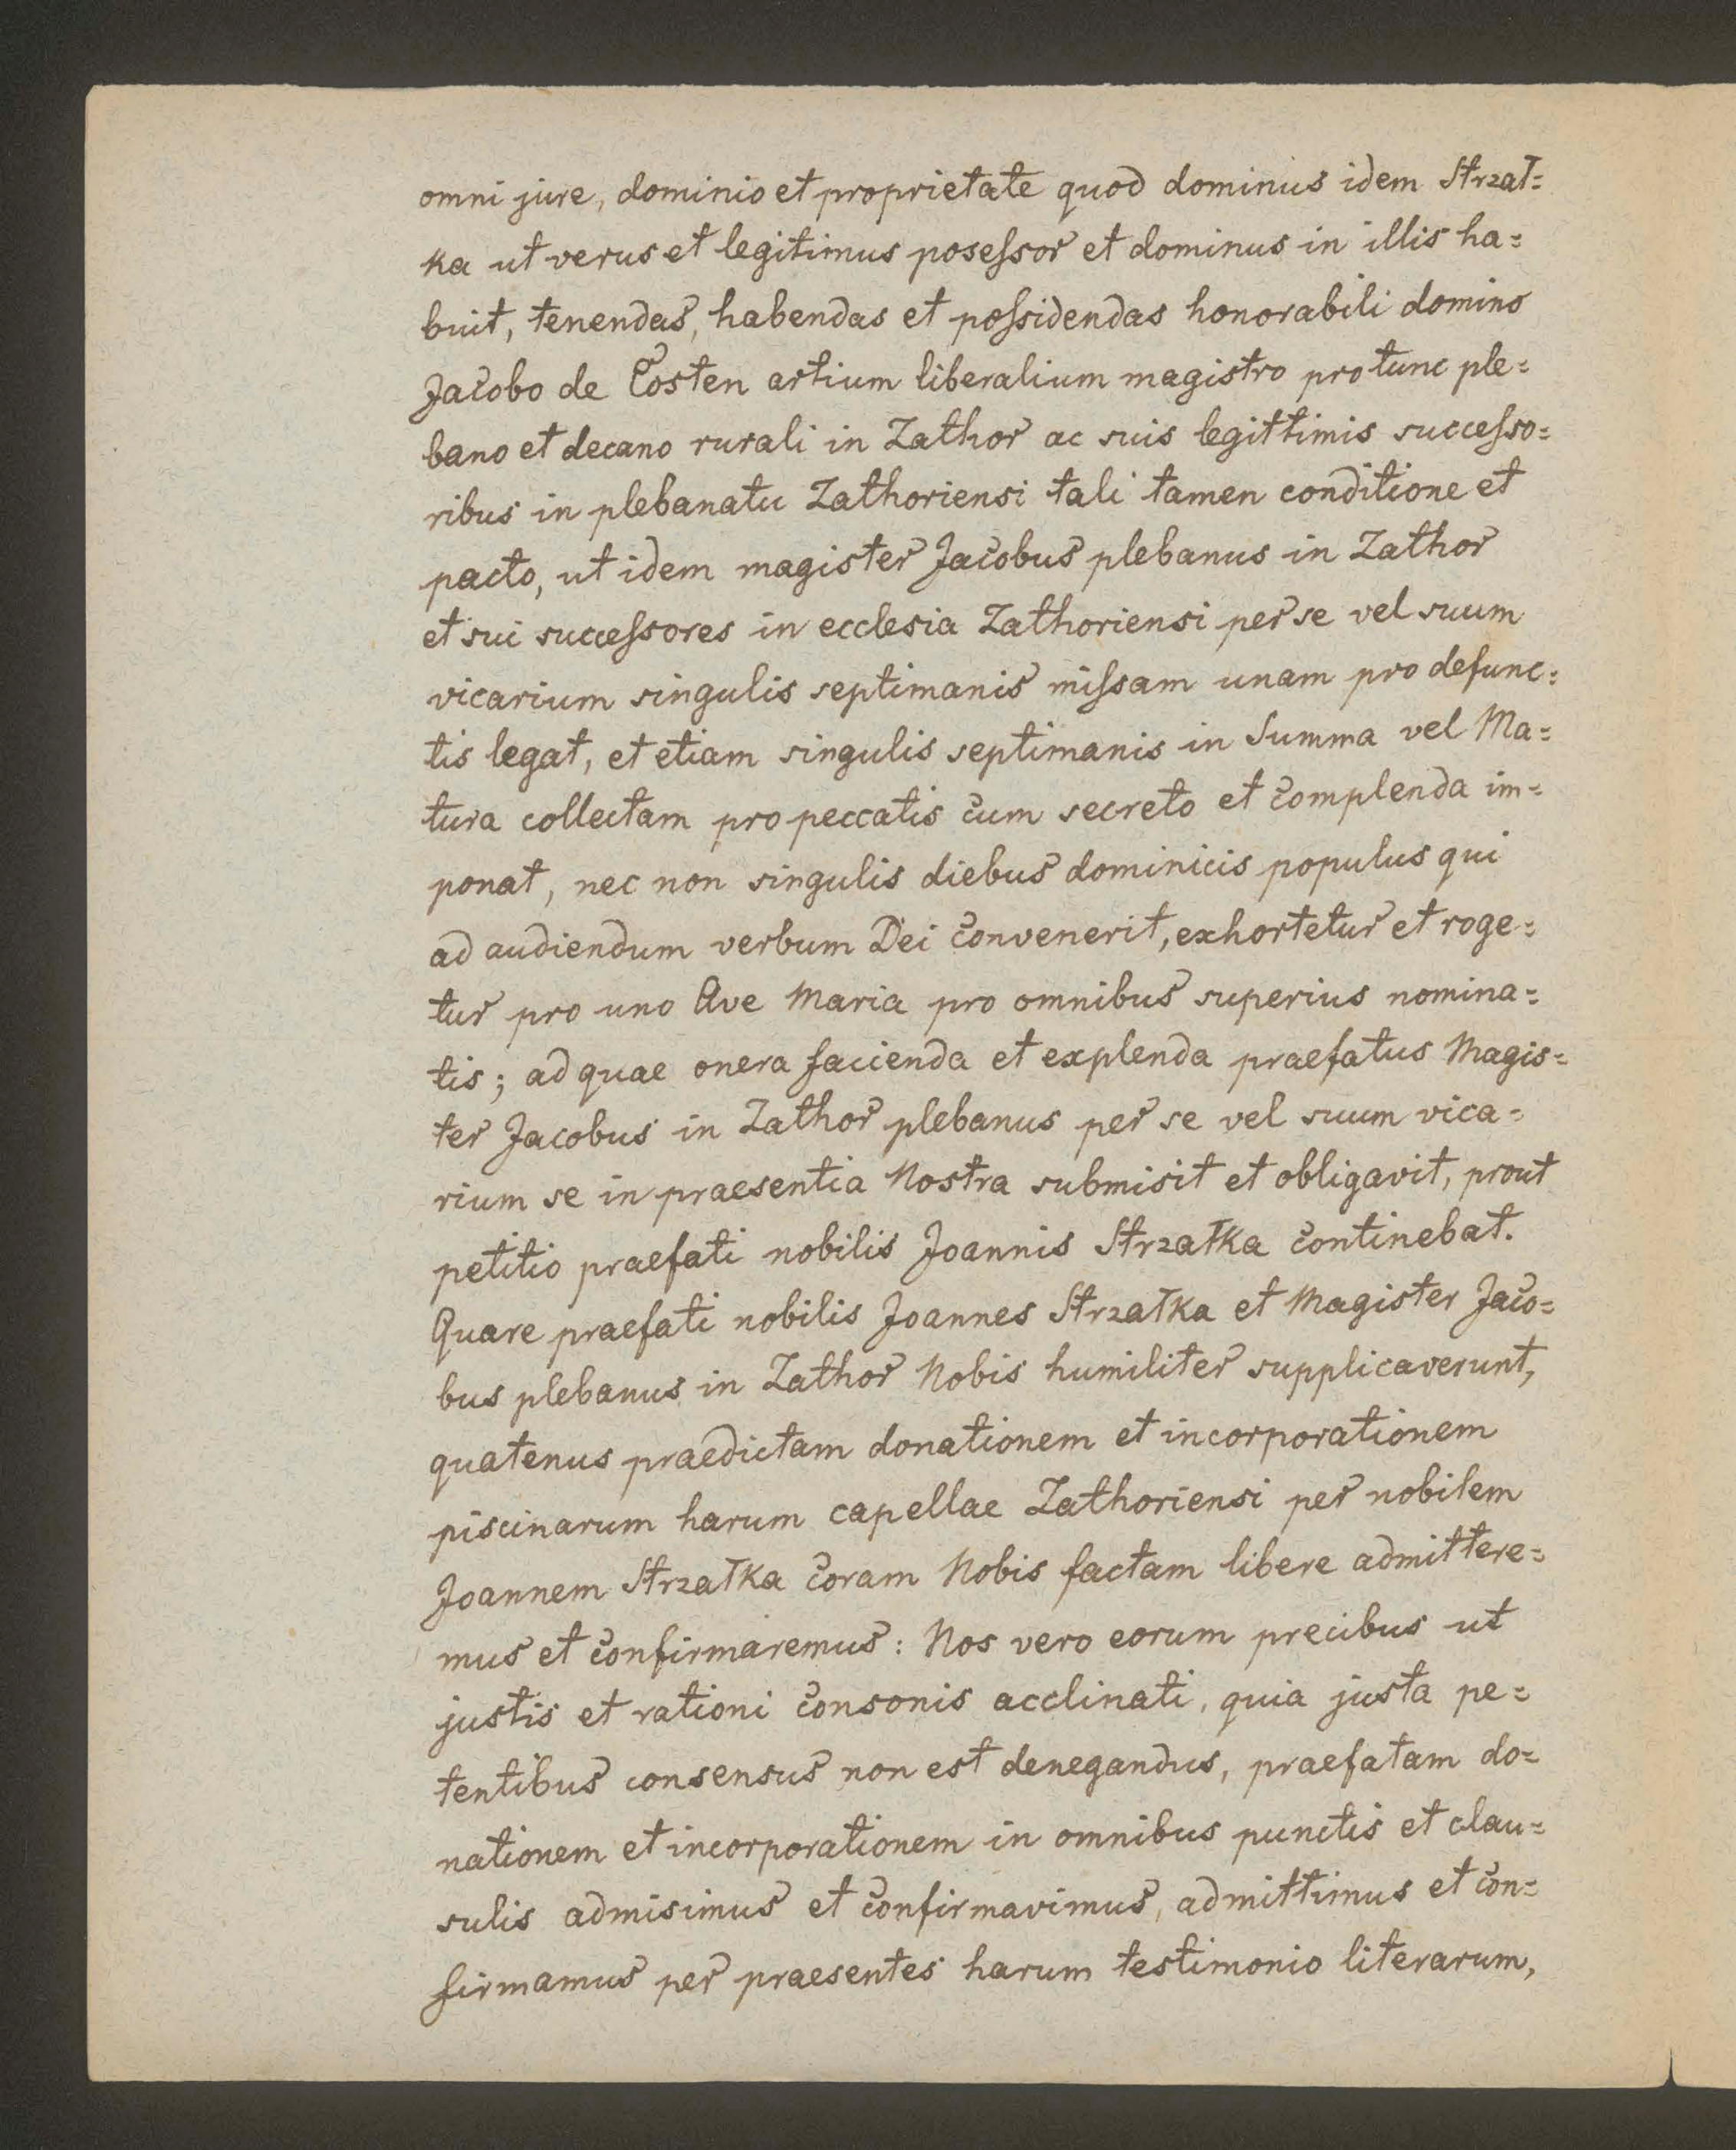 omni jure, dominio et proprietate quod dominus idem Strzał=
ka ut verus et legitimus poseſsor et dominus in illis ha=
buit, tenendas, habendas et poſsidendas honorabili domino
Jacobo de Costen artium liberalium magistro pro tunc ple=
bano et decano rurali in Zathor ac suis legittimis succeſso=
ribus in plebanatu Zathoriensi tali tamen conditione et
pacto, ut idem magister Jacobus plebanus in Zathor
et sui succeſsores in ecclesia Zathoriensi per se vel suum
vicarium singulis septimanis miſsam unam pro defunc=
tis legat, et etiam singulis septimanis in Summa vel Ma=
tura collectam pro peccatis cum secreto et complenda im=
ponat, nec non singulis diebus dominicis populus qui
ad audiendum verbum Dei convenerit, exhortetur et roge=
tur pro uno Ave Maria pro omnibus superius nomina=
tis; ad quae onera facienda et explenda praefatus Magis=
ter Jacobus in Zathor plebanus per se vel suum vica=
rium se in praesentia Nostra submisit et obligavit, prout
petitio praefati nobilis Joannis Strzałka continebat.
Quare praefati nobilis Joannes Strzałka et Magister Jaco=
bus plebanus in Zathor Nobis humiliter supplicaverunt,
quatenus praedictam donationem et incorporationem
piscinarum harum capellae Zathoriensi per nobilem
Joannem Strzałka coram Nobis factam libere admittere=
mus et confirmaremus: Nos vero eorum precibus ut
justis et rationi consonis acclinati, quia justa pe=
tentibus consensus non est denegandus, praefatam do=
nationem et incorporationem in omnibus punctis et clau=
sulis admisimus et confirmavimus, admittimus et con=
firmamus per praesentes harum testimonio literarum,